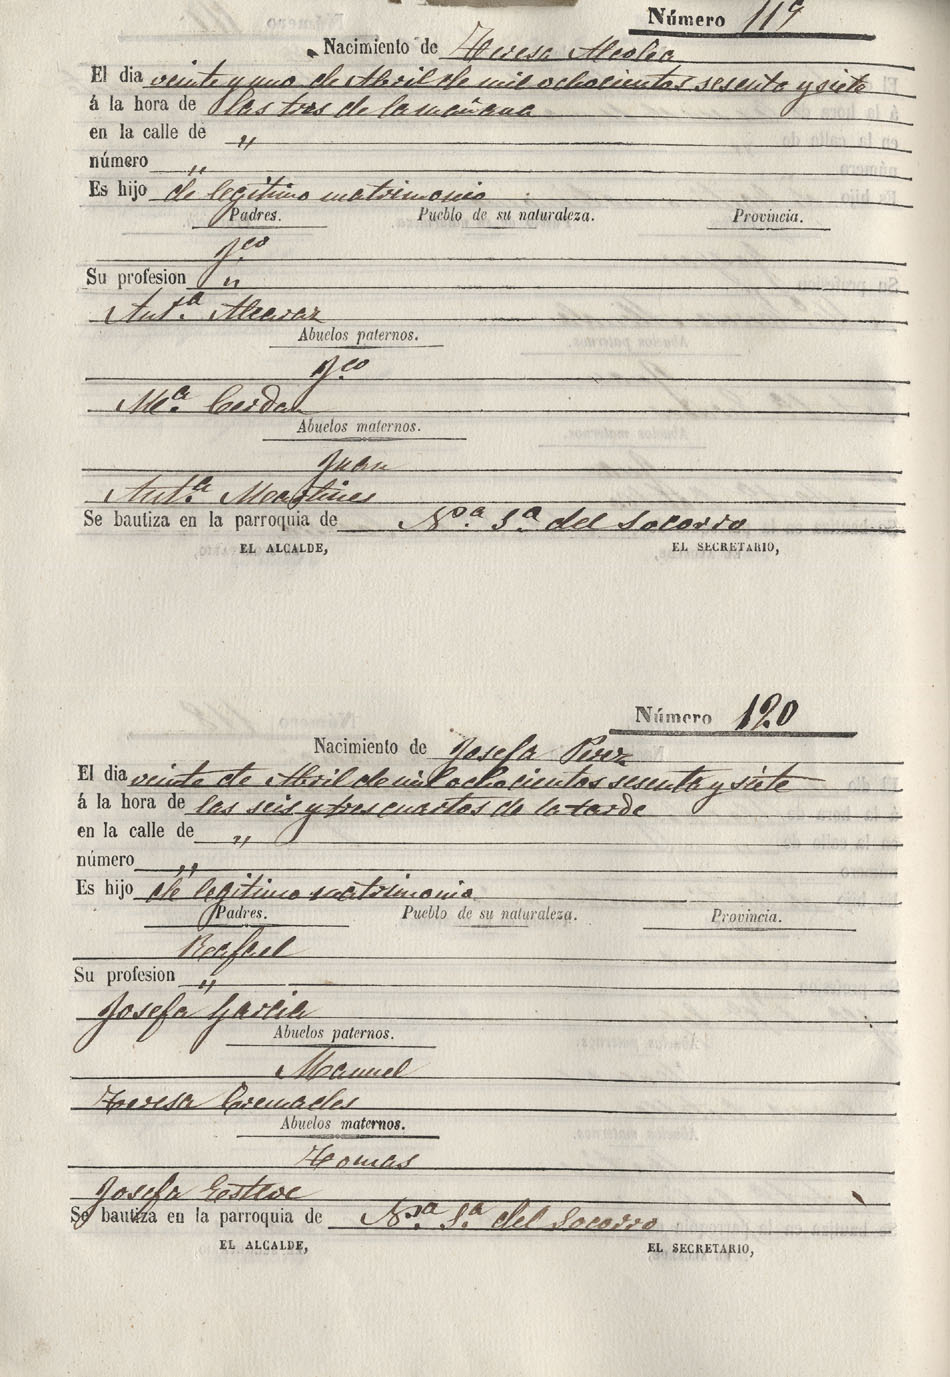 Número 119
Nacimiento de Teresa Alcolea
El dia veinte y uno de Abril de mil ochocientos sesenta y siete
á la hora de las tres de la mañana
en la calle de "
número "
Es hijo de legitimo matrimonio
Padres. Pueblo de su naturaleza. Provincia.
Fco
Su profesion "
Anta. Alcaraz
Abuelos paternos.
Fco
Ma. Cerdan
Abuelos maternos.
Juan
Anta. Martines
Se bautiza en la parroquia de Nra. Sa. del Socorro
EL ALCALDE, EL SECRETARIO,
Número 120
Nacimiento de Josefa Perez
El dia veinte de Abril de mil ochocientos sesenta y siete
á la hora de las seis y tres cuartos de la tarde
en la calle de "
número "
Es hijo de legitimo matrimonio
Padres. Pueblo de su naturaleza. Provincia.
Rafael
Su profesion "
Josefa Garcia
Abuelos paternos.
Manuel
Teresa Cremades
Abuelos maternos.
Tomas
Josefa Esteve
Se bautiza en la parroquia de Nra. Sa. del Socorro
EL ALCALDE, EL SECRETARIO,